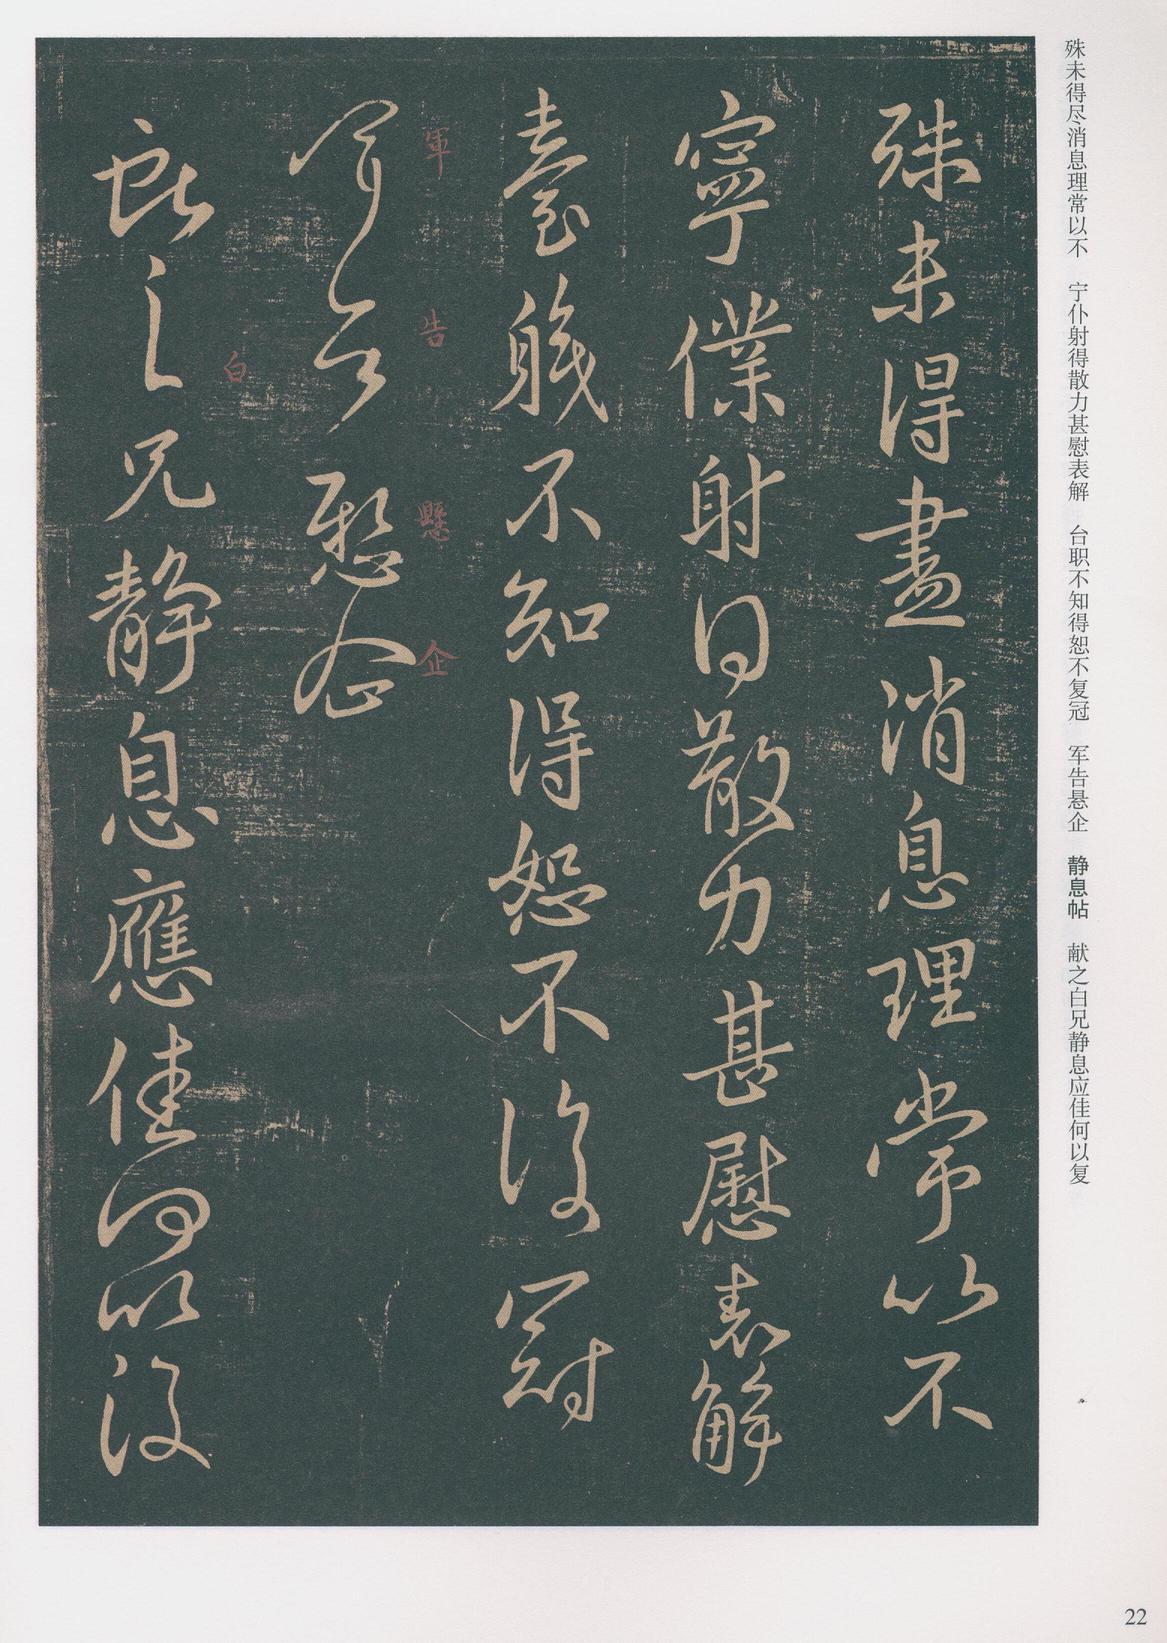 殊未得尽消息理常以不　宁仆射得散力甚慰表解　台职不知得恕不复冠　军告悬企　静息帖　献之白兄静息应佳何以复
殊未得盡消息理常以不
寧僕射得散力甚慰表解
臺職不知得恕不復冠
軍告懸企
軍告懸企
白
獻之兄靜息應佳何以復
22